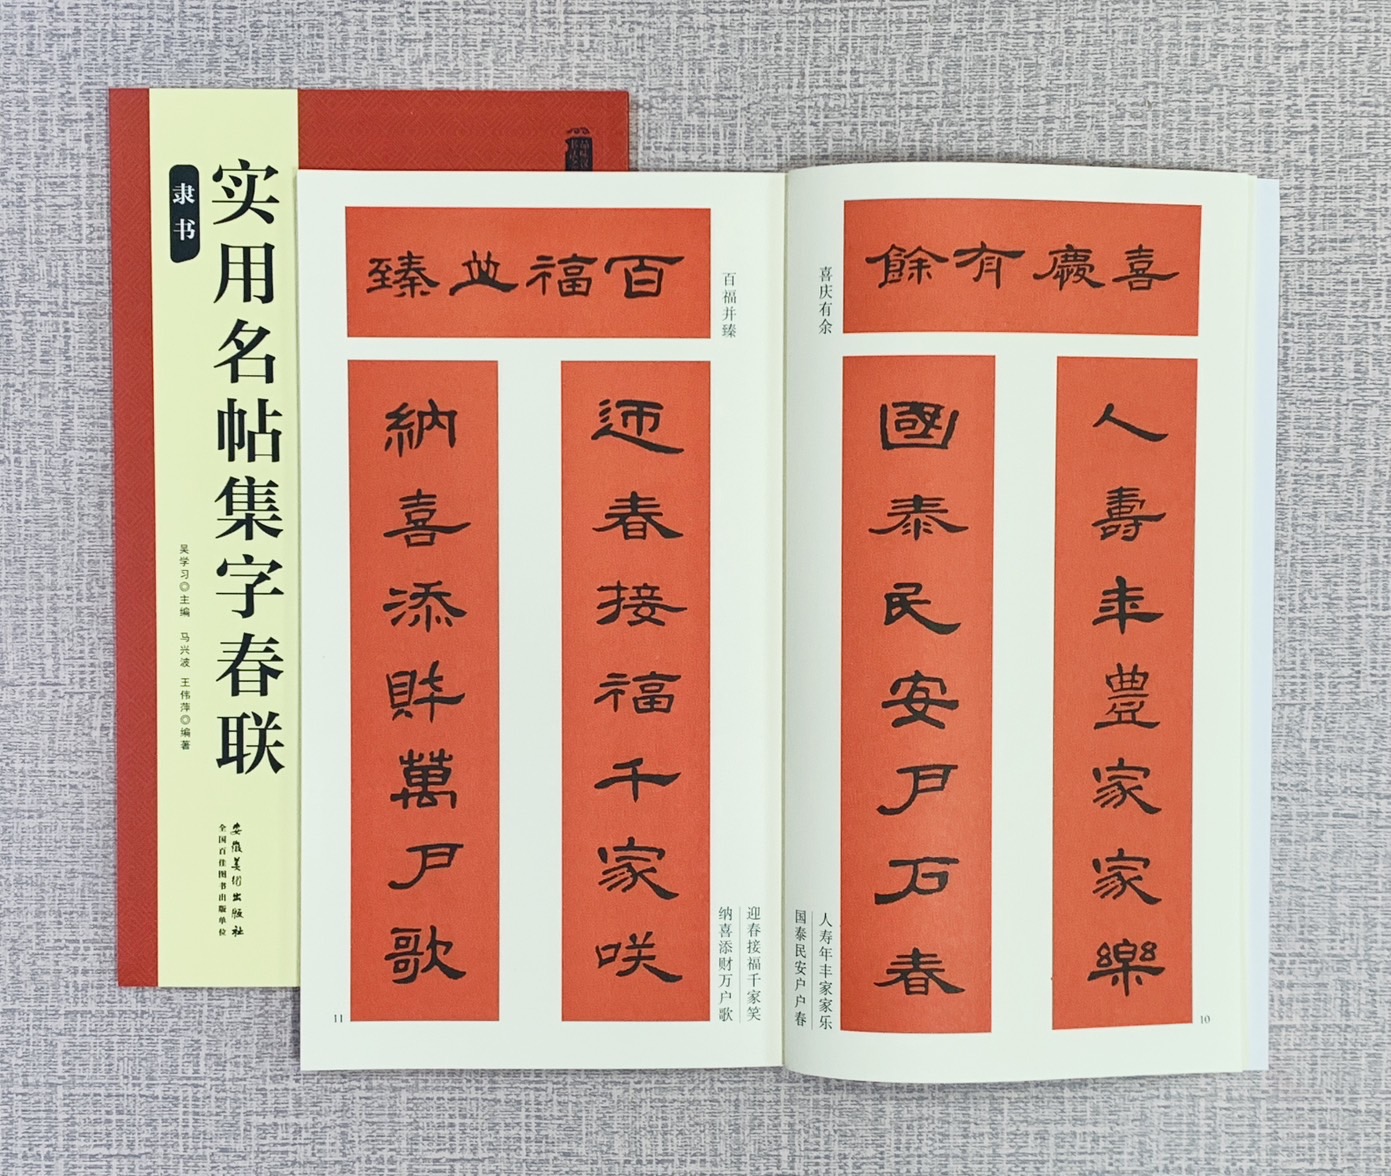 实用名帖集字春联
隶书
吴学习◎主编 马兴波 王伟萍◎编著
安徽美术出版社
全国百佳图书出版单位
喜慶有餘
喜庆有余
人壽年豊家家樂
國泰民安户户春
人寿年丰家家乐
国泰民安户户春
10
百福並臻
百福并臻
迎春接福千家咲
納喜添財萬户歌
迎春接福千家笑
纳喜添财万户歌
11